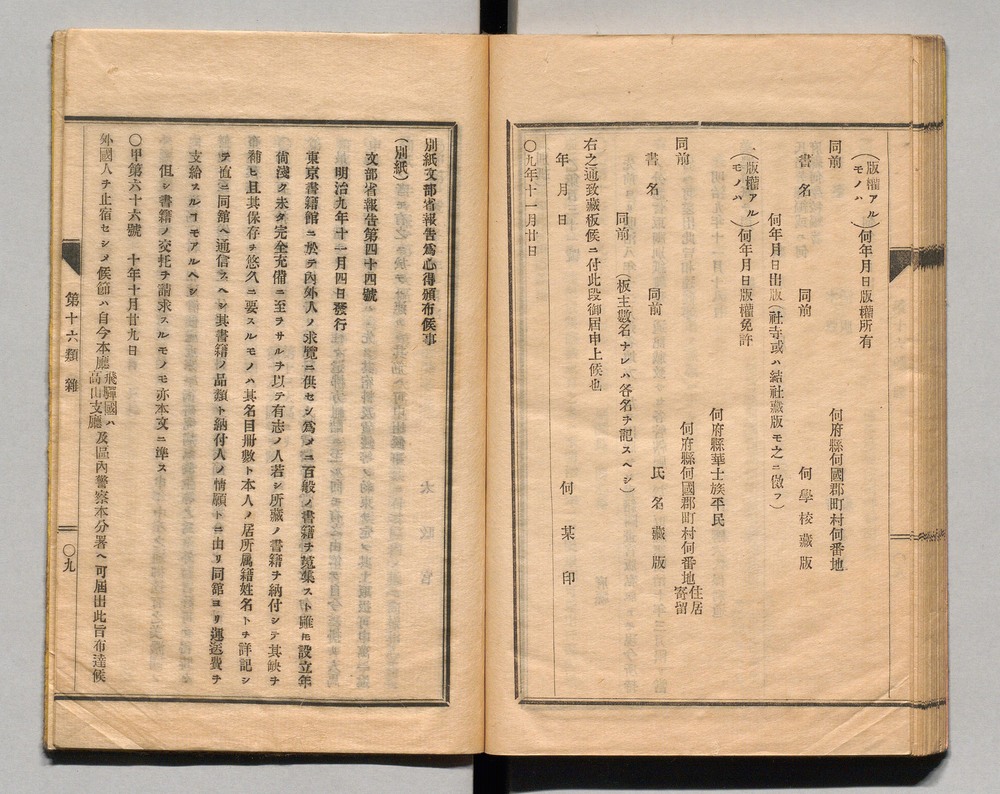 （版權アルモノハ）何年月日版權所有
同前　何府縣何國郡町村何番地
書名　同前　何學校藏版
何年月日出版（社寺或ハ結社藏版モ之ニ倣フ）
（版權アルモノハ）何年月日版權免許
何府縣華士族平民
同前　何府縣何國郡町村何番地住居寄留
書名　同前　氏名藏版
同前　（板主數名ナレハ各名ヲ記スヘシ）
右之通致藏板候ニ付此段御届申上候也
年月日　何某印
〇九年十一月廿日
別紙文部省報告爲心得頒布候事
（別紙）
文部省報告第四十四號
明治九年十一月四日發行
東京書籍館ニ於テ內外人ノ求覽ニ供セシ爲メニ百般ノ書籍ヲ蒐集スト雖モ設立年
尙淺ク未タ完全充備ニ至ラサルヲ以テ有志ノ人若シ所藏ノ書籍ヲ納付シテ其缺ヲ
補ヒ且其保存ヲ悠久ニ要スルモノハ其名目冊數ト本人ノ居所属籍姓名トヲ詳記シ
テ直ニ同館ヘ通信スヘシ其書籍ノ品類ト納付人ノ情願トニ由リ同館ヨリ運送費ヲ
支給スルヿモアルヘシ
但シ書籍ノ交托ヲ請求スルモノモ亦本文ニ準ス
〇甲第六十六號　十年十月廿九日
外國人ヲ止宿セシメ候節ハ自今本廳飛驒國ハ高山支廳及區內警察本分署ヘ可屆出此旨布達候
第十六類　雜
〇九